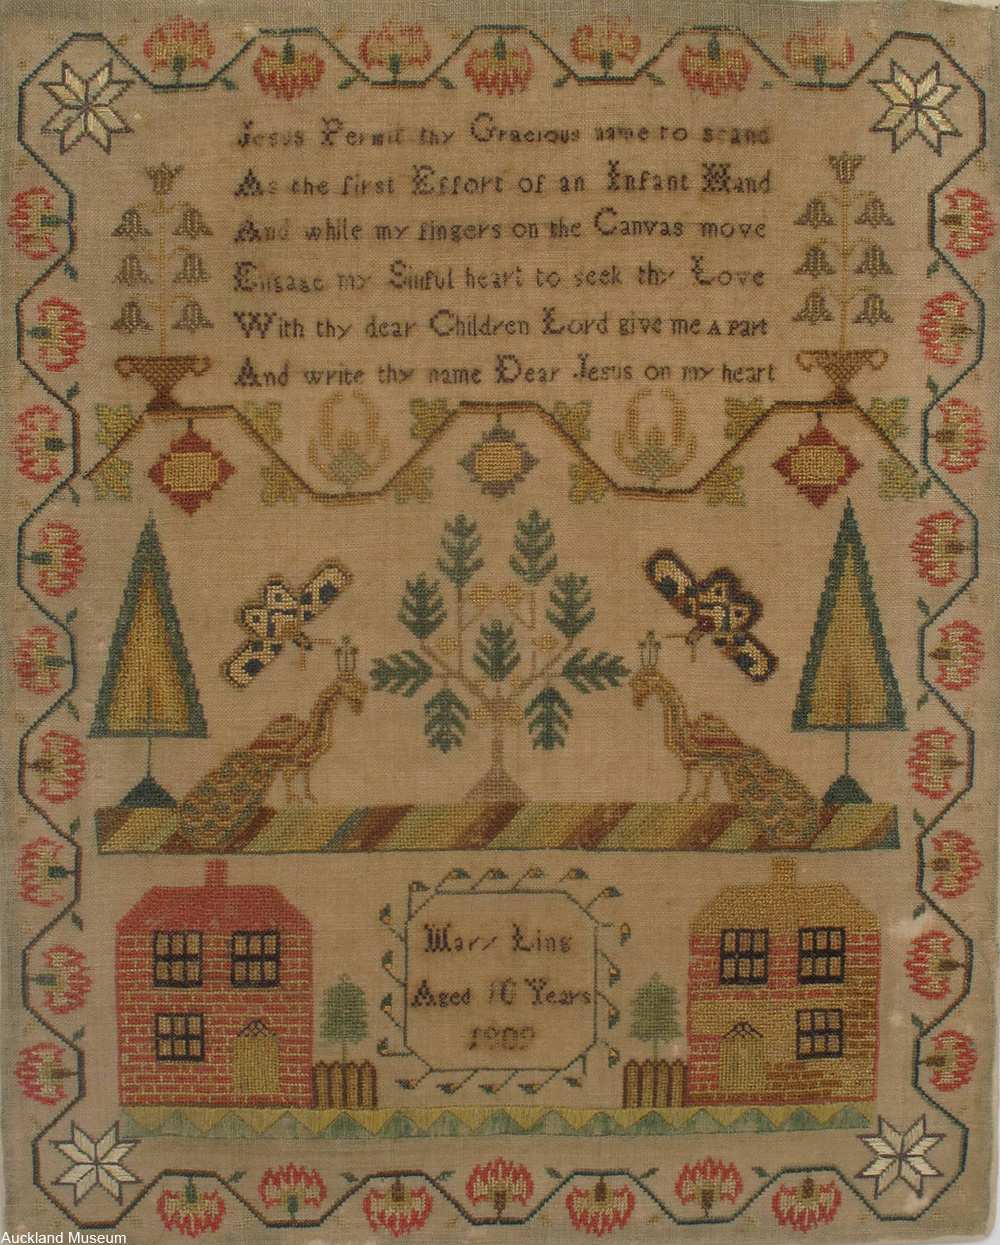 Jesus Permit thy Gracious name to stand
As the first Effort of an Infant Hand
And while my fingers on the Canvas move
Engage my Sinful heart to seek thy Love
With thy dear Children Lord give me A PArt
And write thy name Dear Jesus on my heart
Mary Ling
Aged 10 Years
Auckland Museum